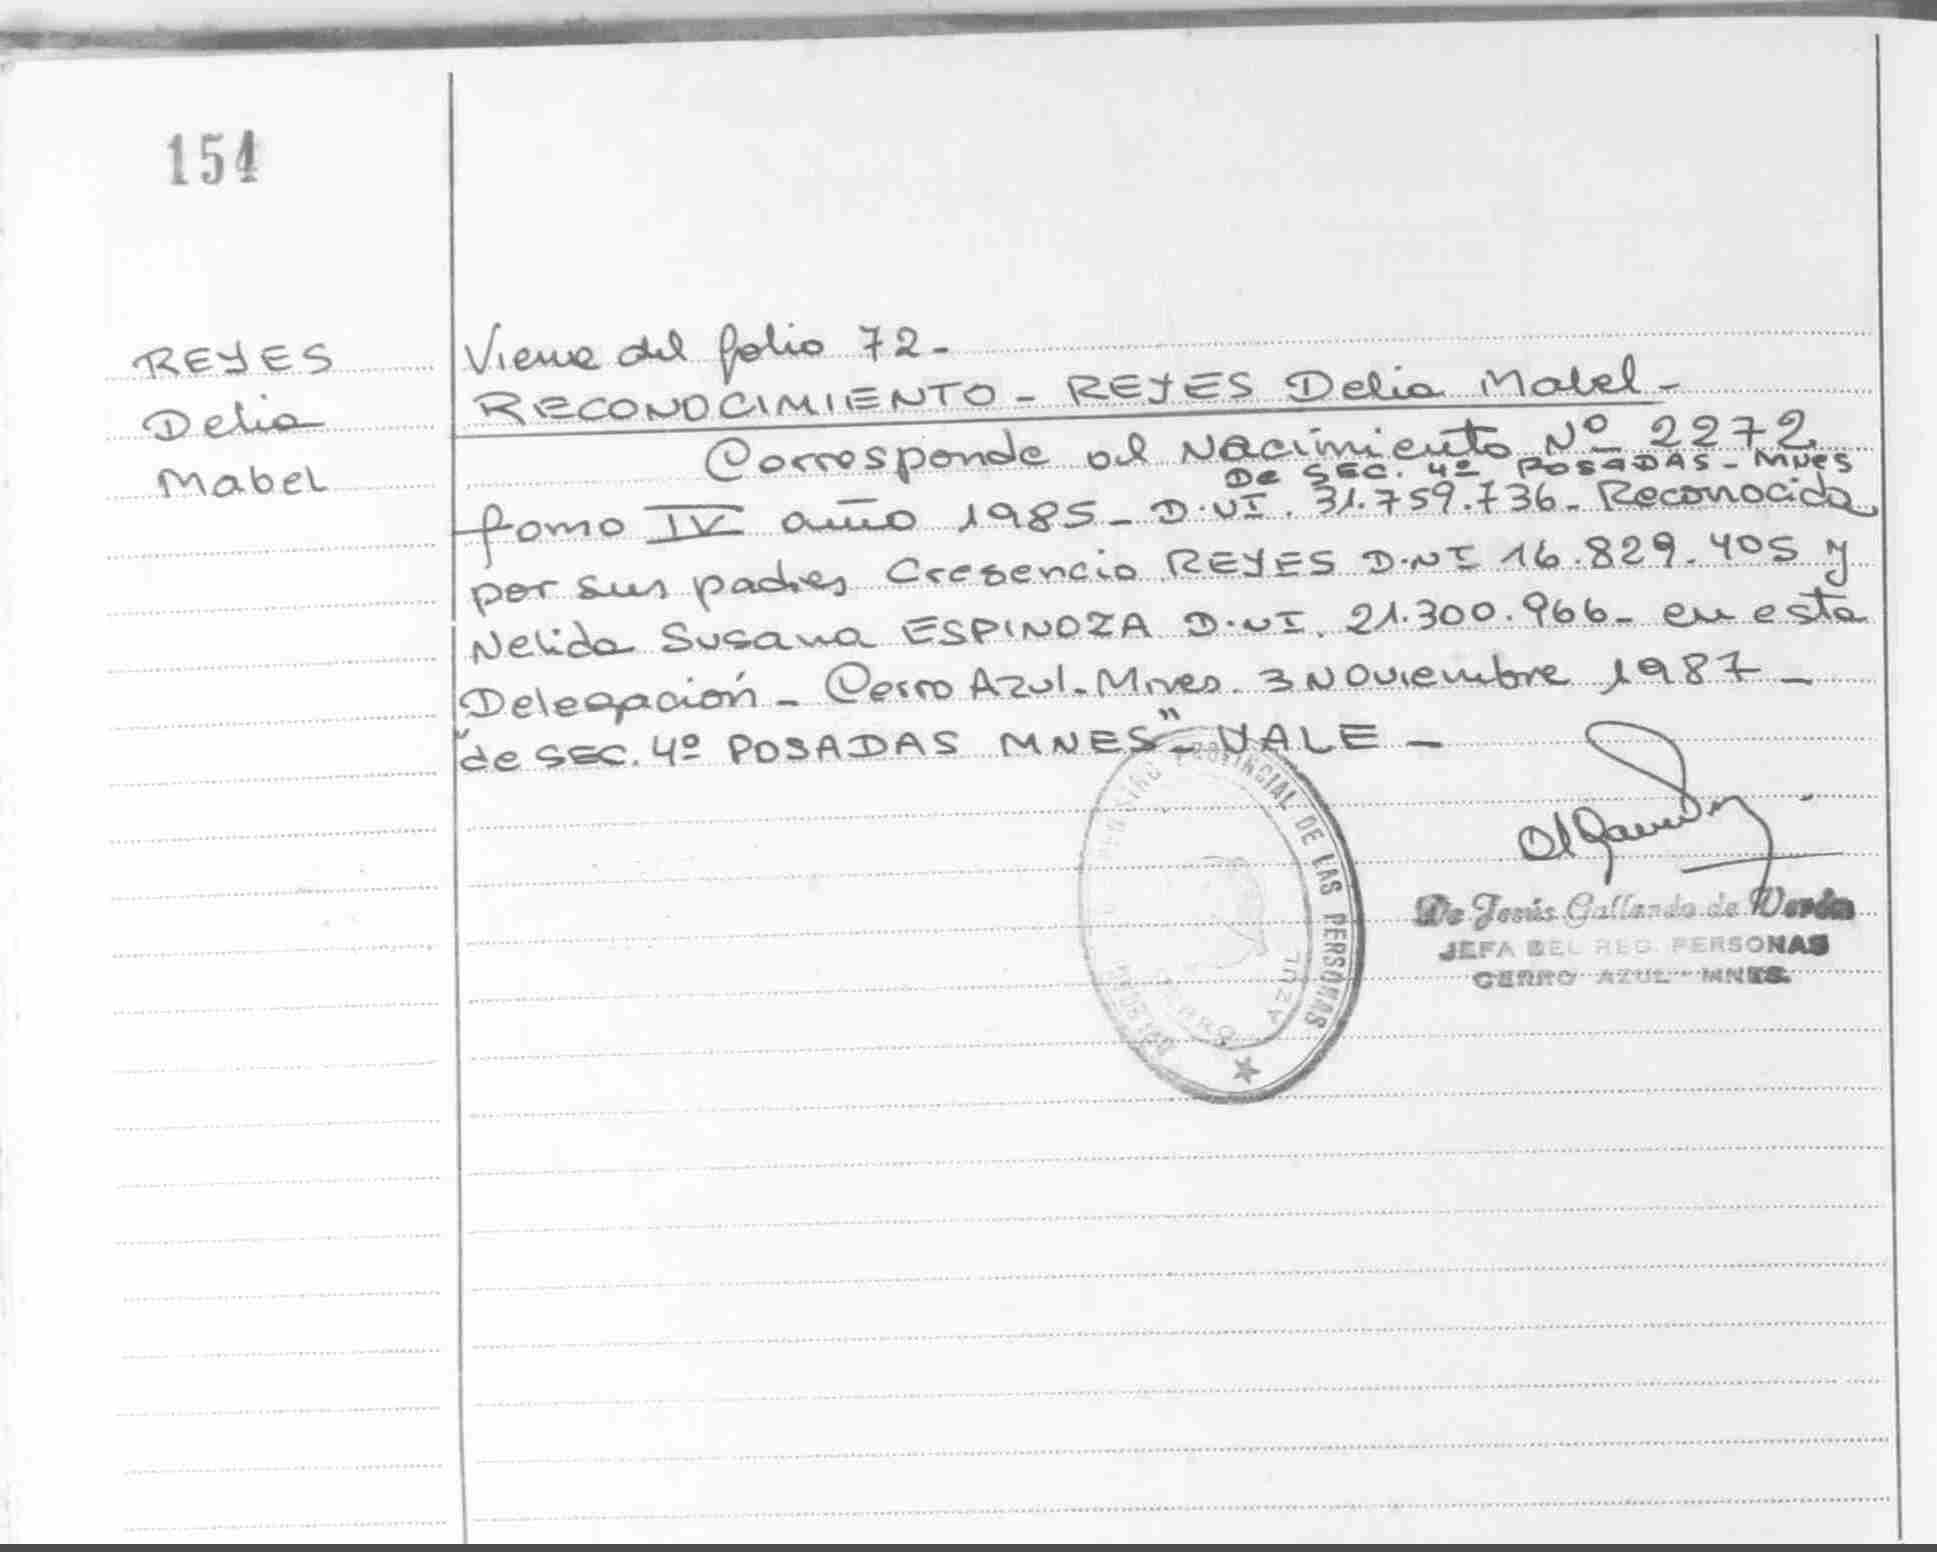 154
REYES
Delia
Mabel
Viene del folio 72-
RECONOCIMIENTO - REYES Delia Mabel -
Corresponde al Nacimiento Nº 2272
De SEC. 4º POSADAS - MNES
Tomo IV año 1985 - D.NI. 31.759.736 - Reconocida
por sus padres Cresencio REYES D.NI 16.829.405 y
Nelida Susana ESPINOZA D.NI. 21.300.966 - en esta
Delegación - Cerro Azul - Mnes. 3 Noviembre 1987 -
"de SEC. 4º POSADAS MNES" - VALE -
PROVINCIAL DE LAS PERSONAS
CERRO AZUL
De Jesús Gallardo de
JEFA DEL REG. PERSONAS
CERRO AZUL - MNES.